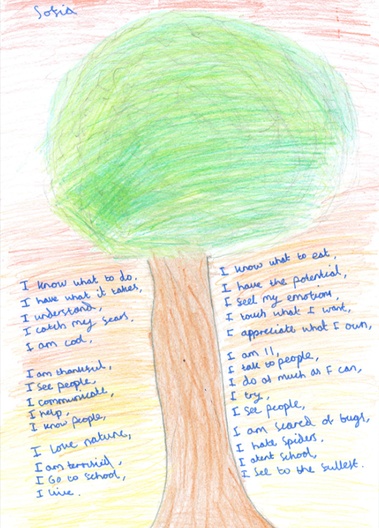 Sofia
I know what to do.
I have what it takes,
I understand,
I catch my fears.
I am cool,
I am thankful,
I see people,
I communicate,
I help,
I know people,
I love nature,
I am terrified,
I Go to school,
I live.
I know what to eat,
I have the potential,
I feel my emotions,
I touch what I want,
I appreciate what I own,
I am 11,
I talk to people,
I do as much as I can,
I try,
I see people,
I am scared of bugs,
I hate spiders.
I atent school,
I see to the fullest.